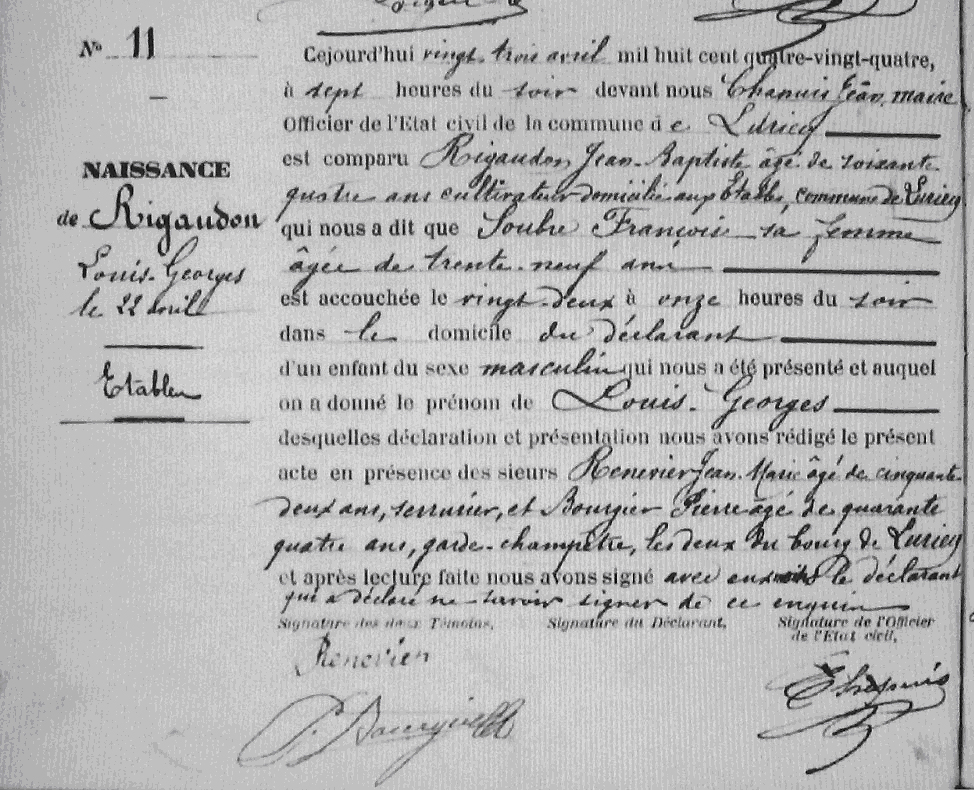 N° 11
NAISSANCE
de Rigaudon
Louis-Georges
le 22 avril
Etables
Cejourd'hui vingt-trois avril mil huit cent quatre-vingt-quatre,
à sept heures du soir devant nous Chapuis Jean, maire
Officier de l'Etat civil de la commune de Luriecq
est comparu Rigaudon Jean-Baptiste âgé de soixante
quatre ans cultivateur domicilié aux Etables, commune de Luriecq
qui nous a dit que Soubre François sa femme
âgée de trente-neuf ans
est accouchée le vingt-deux à onze heures du soir
dans le domicile du déclarant
d'un enfant du sexe masculin qui nous a été présenté et auquel
on a donné le prénom de Louis-Georges
desquelles déclaration et présentation nous avons rédigé le présent
acte en présence des sieurs Renevier Jean-Marie âgé de cinquante
deux ans, serrurier, et Bourgier Pierre âgé de quarante
quatre ans, garde-champêtre, les deux du bourg de Luriecq
et après lecture faite nous avons signé avec eux le déclarant
qui a déclaré ne savoir signer de ce enquis
Signature des deux Témoins, Signature du Déclarant, Signature de l'Officier
de l'Etat civil,
Renevier
P. Bourgier
Chapuis